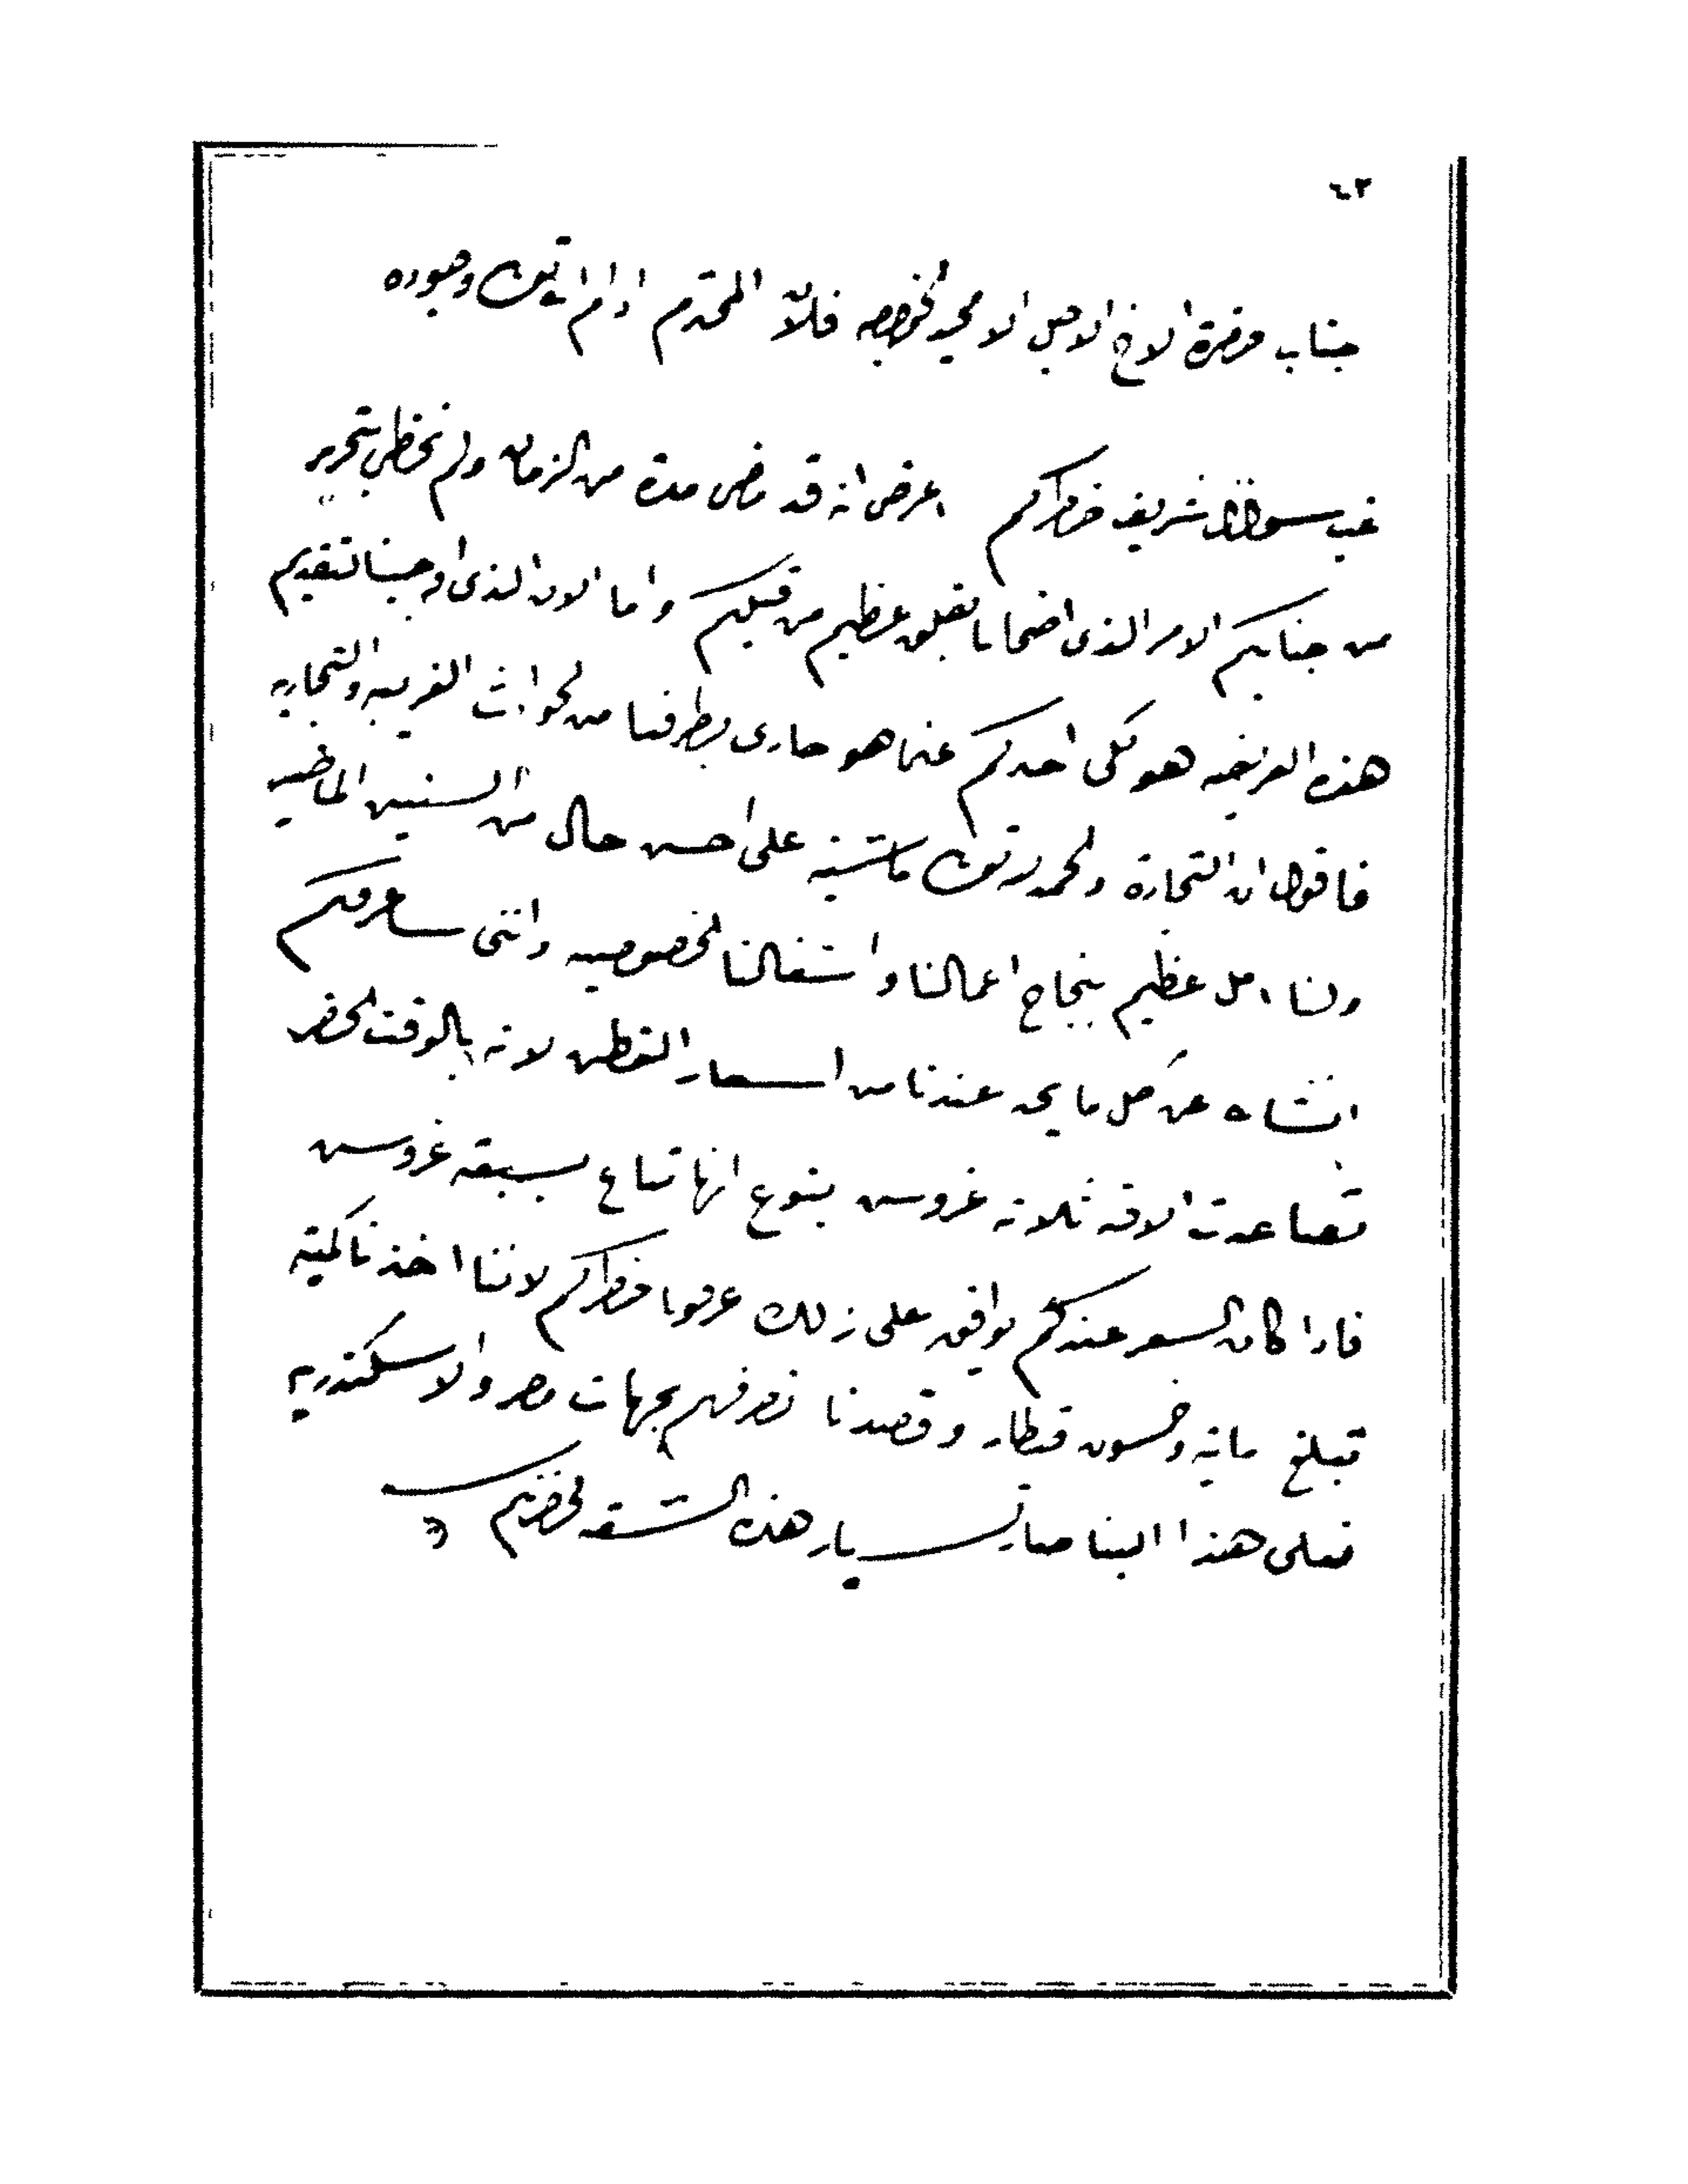 ٤٣
جناب حضرة الاخ الاجل الامجد الخصيصه فلان المحترم ادام الله تعالى وجوده
غب سوال شريف خاطركم اعرض انه قد مضى مدة من الزمان ولم نحظى بتحرير
من جنابكم الامر الذى اضحانا بقلق عظيم من قبلكم واما الان الذى اوجبنا لتقديم
هذه العريضه هو لكى احدكم عما هو جارى بطرفنا من الحوادث الغريبه والتجاريه
فاقول ان التجارة والحمد لله تعالى ماشيه على احسن حال من السنين الماضيه
ولنا امل عظيم بنجاح اعمالنا واشغالنا الخصوصيه واننى ساعرفكم
انشاء الله عن كل ما يجد عندنا من اسعار القطن لانه بالوقت الحاضر
تصاعدت الاقه ثلاثه غروس بنوع انها تباع بسبعة غروس
فاذا كان السعر عندكم يوافق على ذلك عرفونا خاطركم لاننا اخذنا كمية
تبلغ ماية وخمسون قنطار وقصدنا نصرفهم بجهات مصر والاسكندريه
فعلى هذا البنا صار تسيار هذه الشقه لحضرتكم